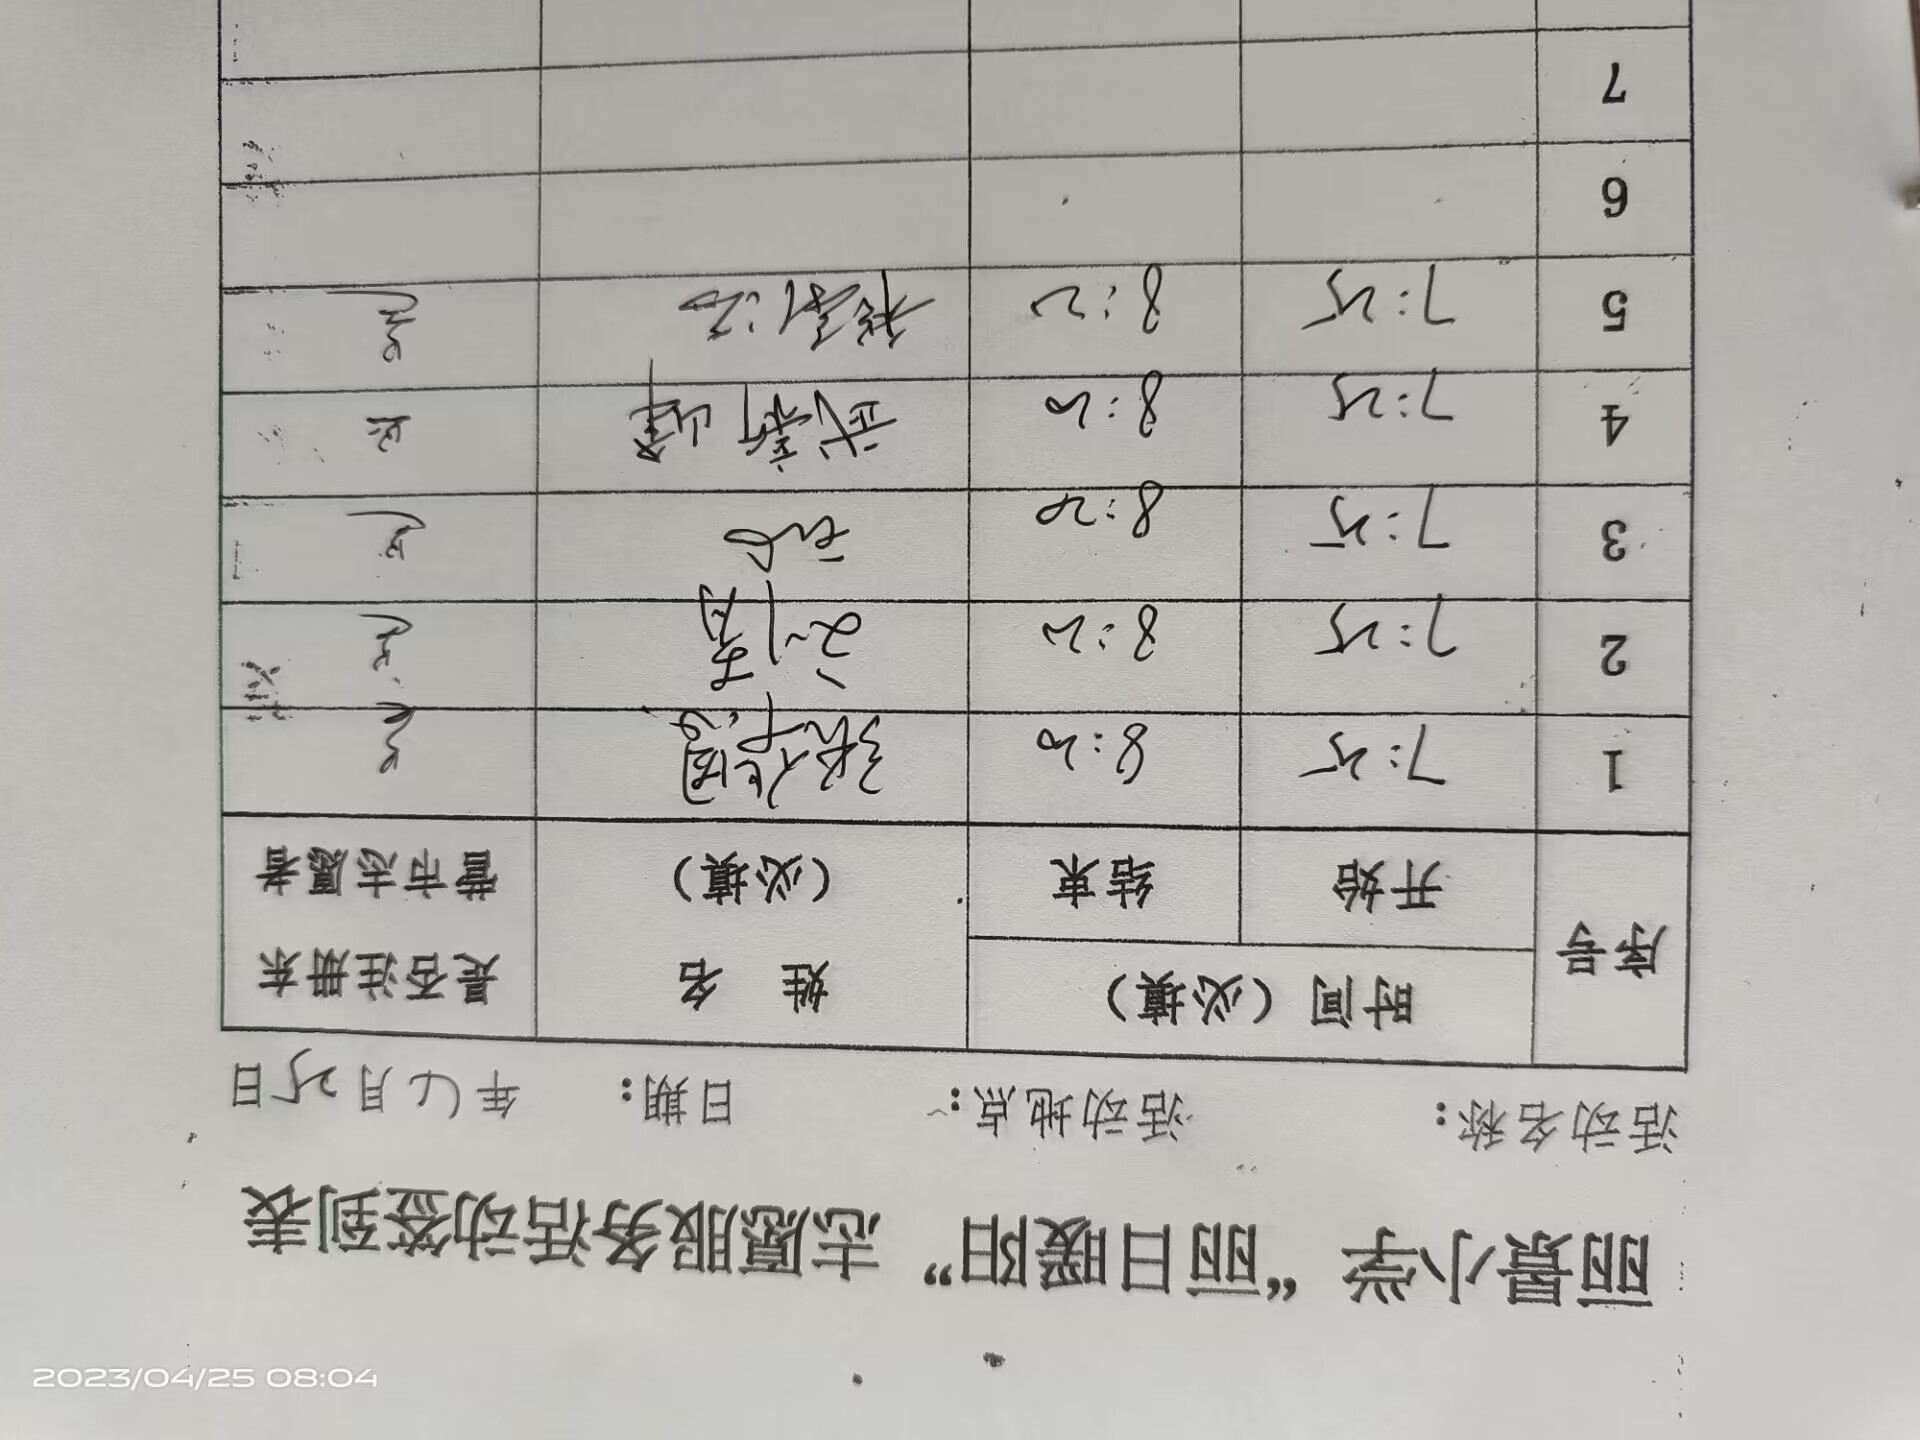 丽景小学“丽日暖阳”志愿服务活动签到表
活动名称： 活动地点： 日期： 年4月25日
序号 时间（必填） 姓 名 是否注册东
开始 结束 （必填） 营市志愿者
1 7:25 8:20 是
2 7:25 8:20 是
3 7:25 8:20 是
4 7:25 8:20 武新峰 是
5 7:25 8:20 是
6
7
2023/04/25 08:04